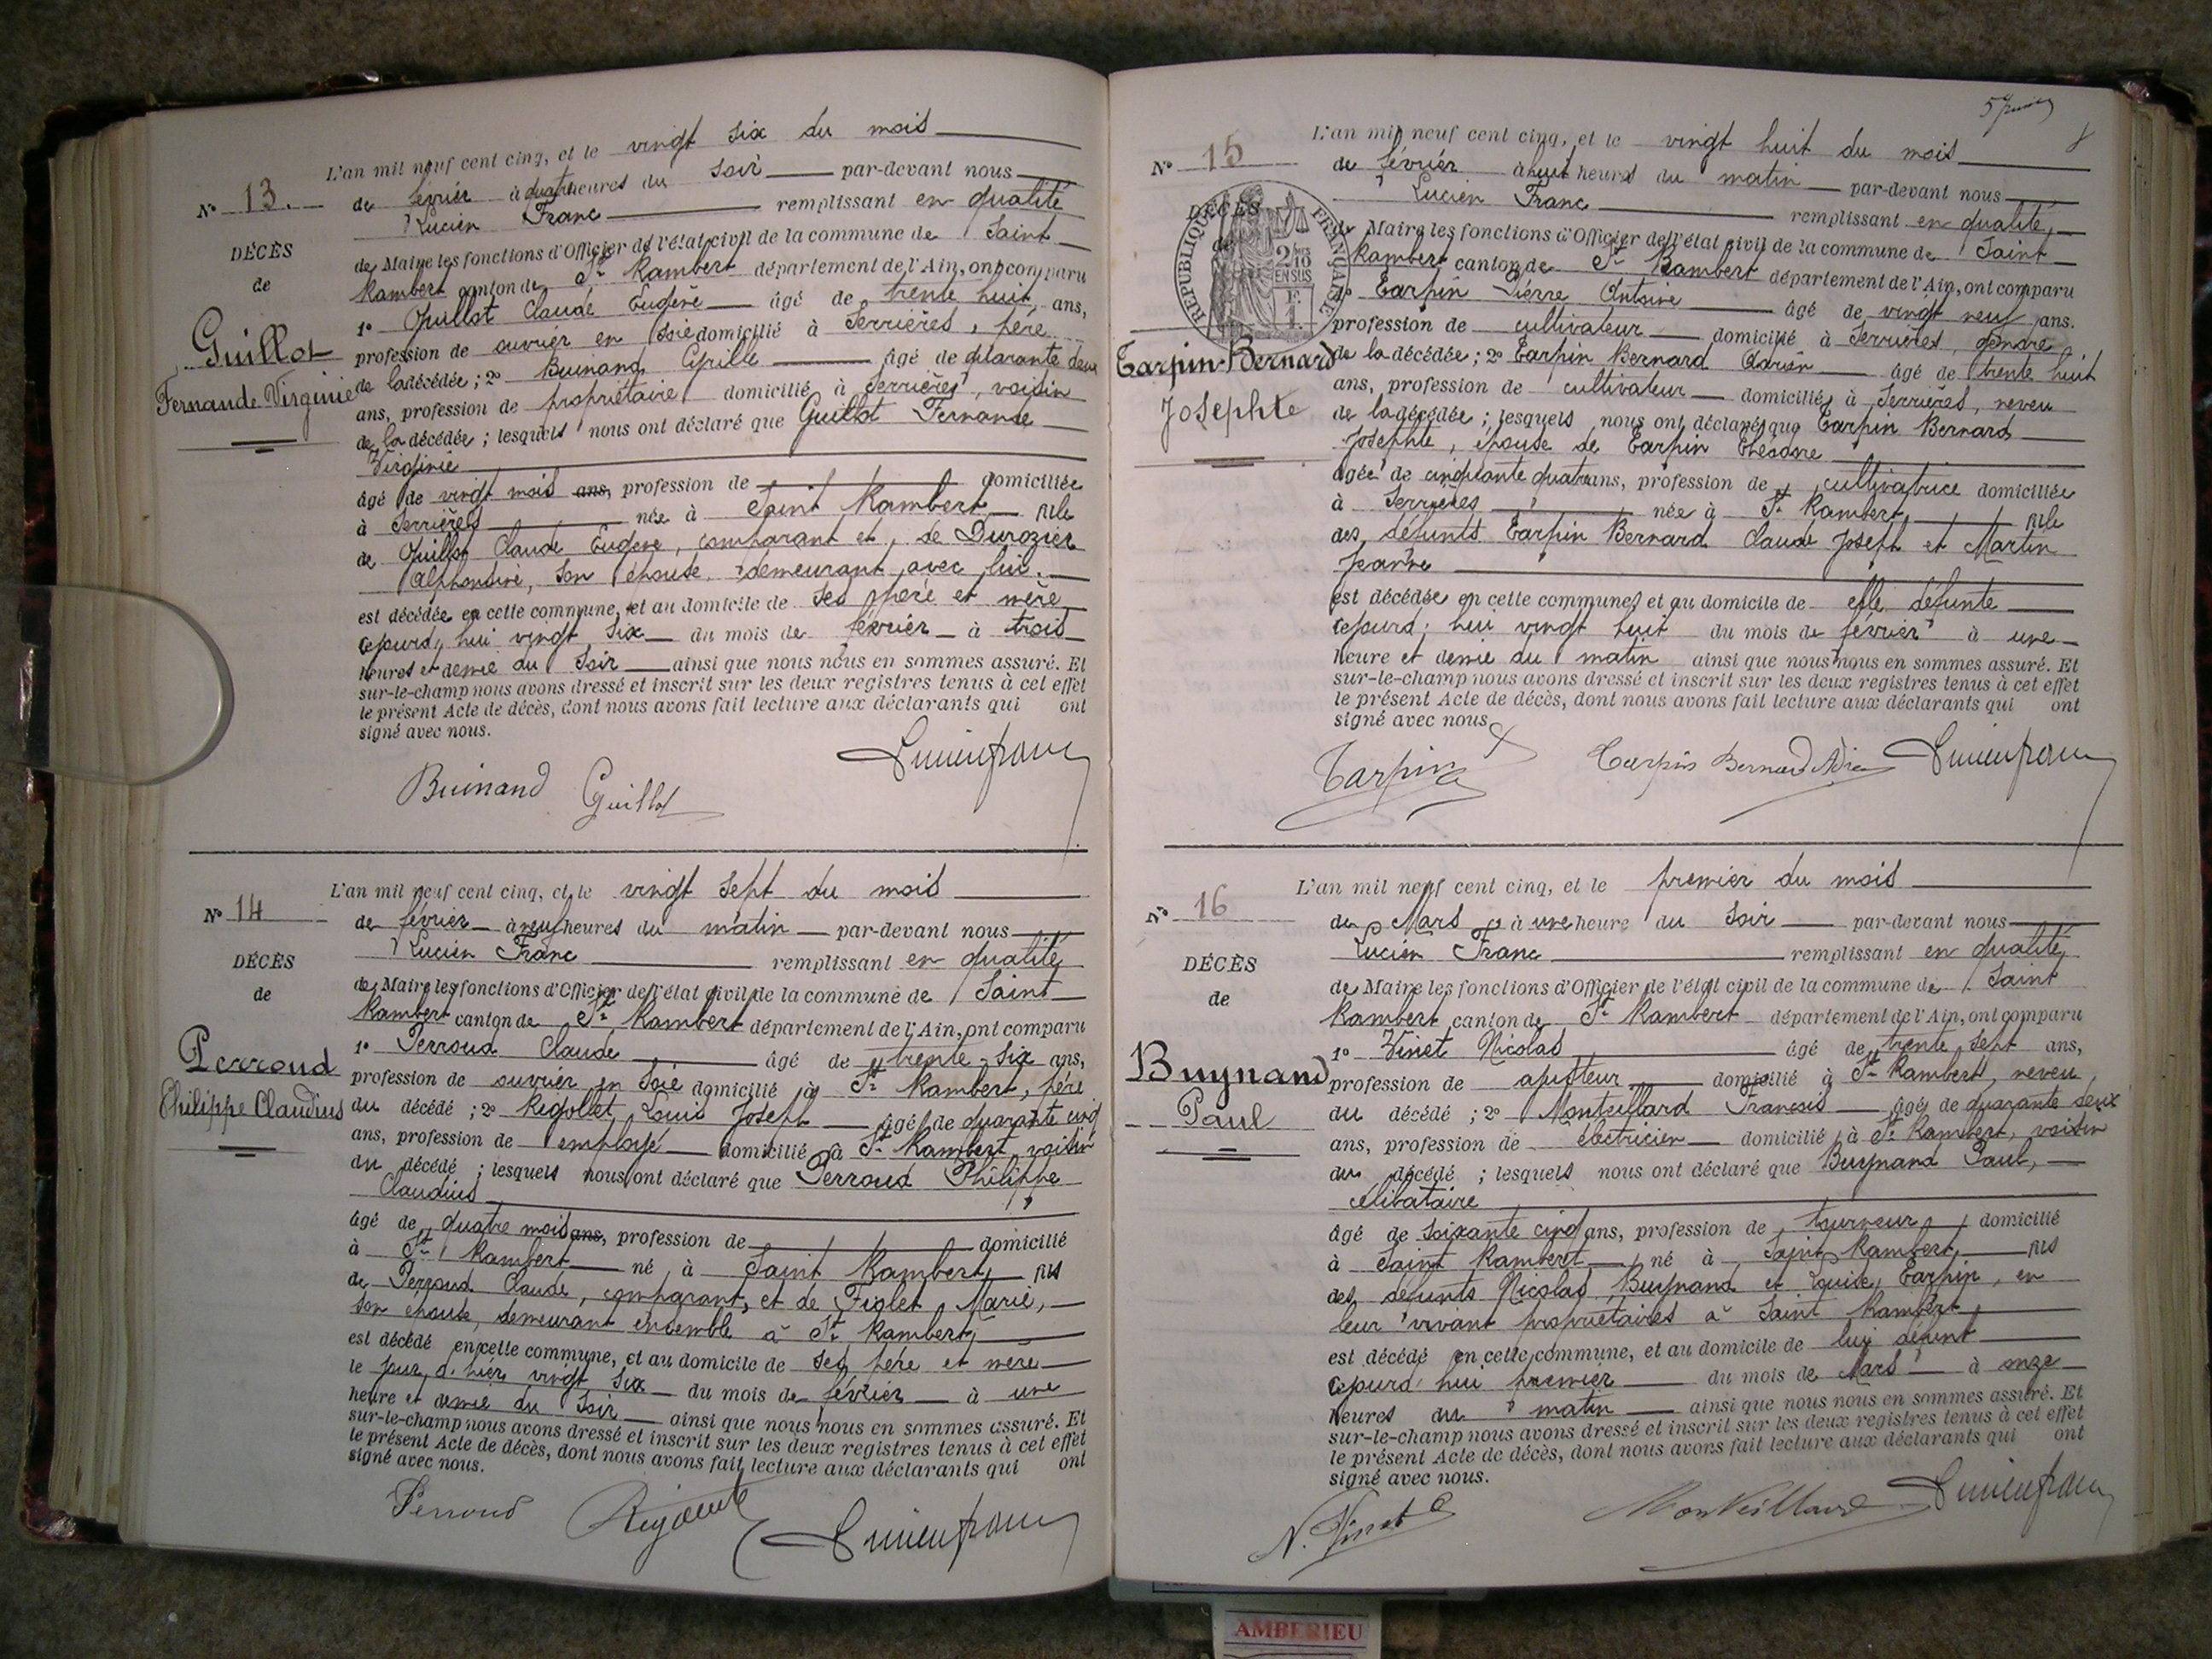 N° 13.
DÉCÈS
de
Guillot
Fernande Virginie
L'an mil neuf cent cinq, et le vingt six du mois
de février à quatre heures du soir par-devant nous
Lucien Franc remplissant en qualité
de Maire les fonctions d'Officier de l'état civil de la commune de Saint
Rambert canton de St Rambert département de l'Ain, ont comparu
1° Guillot Claude Eugène âgé de trente huit ans,
profession de ouvrier en soie domicilié à Serrières, père
de la décédée; 2° Buinand Cyrille âgé de quarante deux
ans, profession de propriétaire domicilié à Serrières, voisin
de la décédée; lesquels nous ont déclaré que Guillot Fernande
Virginie
âgé de vingt mois ans, profession de domiciliée
à Serrières née à Saint Rambert fille
de Guillot Claude Eugène, comparant et de Durozier
Alphonsine, son épouse, demeurant avec lui.
est décédée en cette commune, et au domicile de ses père et mère
cejourd'hui vingt six du mois de février à trois
heures et demie du soir ainsi que nous nous en sommes assuré. Et
sur-le-champ nous avons dressé et inscrit sur les deux registres tenus à cet effet
le présent Acte de décès, dont nous avons fait lecture aux déclarants qui ont
signé avec nous.
Buinand Guillot Lucien Franc
N° 14
DÉCÈS
de
Perroud
Philippe Claudius
L'an mil neuf cent cinq, et le vingt sept du mois
de février à neuf heures du matin par-devant nous
Lucien Franc remplissant en qualité
de Maire les fonctions d'Officier de l'état civil de la commune de Saint
Rambert canton de St Rambert département de l'Ain, ont comparu
1° Perroud Claude âgé de trente six ans,
profession de ouvrier en soie domicilié à St Rambert, père
du décédé; 2° Rigollet Louis Joseph âgé de quarante cinq
ans, profession de employé domicilié à St Rambert voisin
du décédé; lesquels nous ont déclaré que Perroud Philippe
Claudius
âgé de quatre mois ans, profession de domicilié
à St Rambert né à Saint Rambert fils
de Perroud Claude, comparant, et de Fiolet Marie,
son épouse, demeurant ensemble à St Rambert
est décédé en cette commune, et au domicile de ses père et mère
le jour d'hier vingt six du mois de février à une
heure et demie du soir ainsi que nous nous en sommes assuré. Et
sur-le-champ nous avons dressé et inscrit sur les deux registres tenus à cet effet
le présent Acte de décès, dont nous avons fait lecture aux déclarants qui ont
signé avec nous.
Perroud Lucien Franc
N° 15
DÉCÈS
de
RÉPUBLIQUE FRANÇAISE
2/10
EN SUS
Tarpin-Bernard
Josephte
L'an mil neuf cent cinq, et le vingt huit du mois
de février à huit heures du matin par-devant nous
Lucien Franc remplissant en qualité
de Maire les fonctions d'Officier de l'état civil de la commune de Saint
Rambert canton de St Rambert département de l'Ain, ont comparu
1° Tarpin Pierre Antoine âgé de vingt neuf ans.
profession de cultivateur domicilié à Serrières, gendre
de la décédée; 2° Tarpin Bernard Adrien âgé de trente huit
ans, profession de cultivateur domiciliés à Serrières, neveu
de la décédée; lesquels nous ont déclaré que Tarpin Bernard
Josephte, épouse de Tarpin Théodore
âgée de cinquante quatre ans, profession de cultivatrice domiciliée
à Serrières née à St Rambert fille
des défunts Tarpin Bernard Claude Joseph et Martin
Jeanne
est décédée en cette commune, et au domicile de elle défunte
cejourd'hui vingt huit du mois de février à une
heure et demie du matin ainsi que nous nous en sommes assuré. Et
sur-le-champ nous avons dressé et inscrit sur les deux registres tenus à cet effet
le présent Acte de décès, dont nous avons fait lecture aux déclarants qui ont
signé avec nous
Tarpin Tarpin Bernard Lucien Franc
N° 16
DÉCÈS
de
Buynand
Paul
L'an mil neuf cent cinq, et le premier du mois
de Mars à une heure du soir par-devant nous
Lucien Franc remplissant en qualité
de Maire les fonctions d'Officier de l'état civil de la commune de Saint
Rambert canton de St Rambert département de l'Ain, ont comparu
1° Vinet Nicolas âgé de trente sept ans,
profession de ajusteur domicilié à St Rambert, neveu
du décédé; 2° Montvillard François âgé de quarante deux
ans, profession de électricien domicilié à St Rambert, voisin
du décédé; lesquels nous ont déclaré que Buynand Paul,
célibataire
âgé de soixante cinq ans, profession de tourneur domicilié
à Saint Rambert né à Saint Rambert fils
des défunts Nicolas Buynand et Louise Tarpin, en
leur vivant propriétaires à Saint Rambert
est décédé en cette commune, et au domicile de lui défunt
cejourd'hui premier du mois de Mars à onze
heures du matin ainsi que nous nous en sommes assuré. Et
sur-le-champ nous avons dressé et inscrit sur les deux registres tenus à cet effet
le présent Acte de décès, dont nous avons fait lecture aux déclarants qui ont
signé avec nous.
N. Vinet Lucien Franc
AMBERIEU